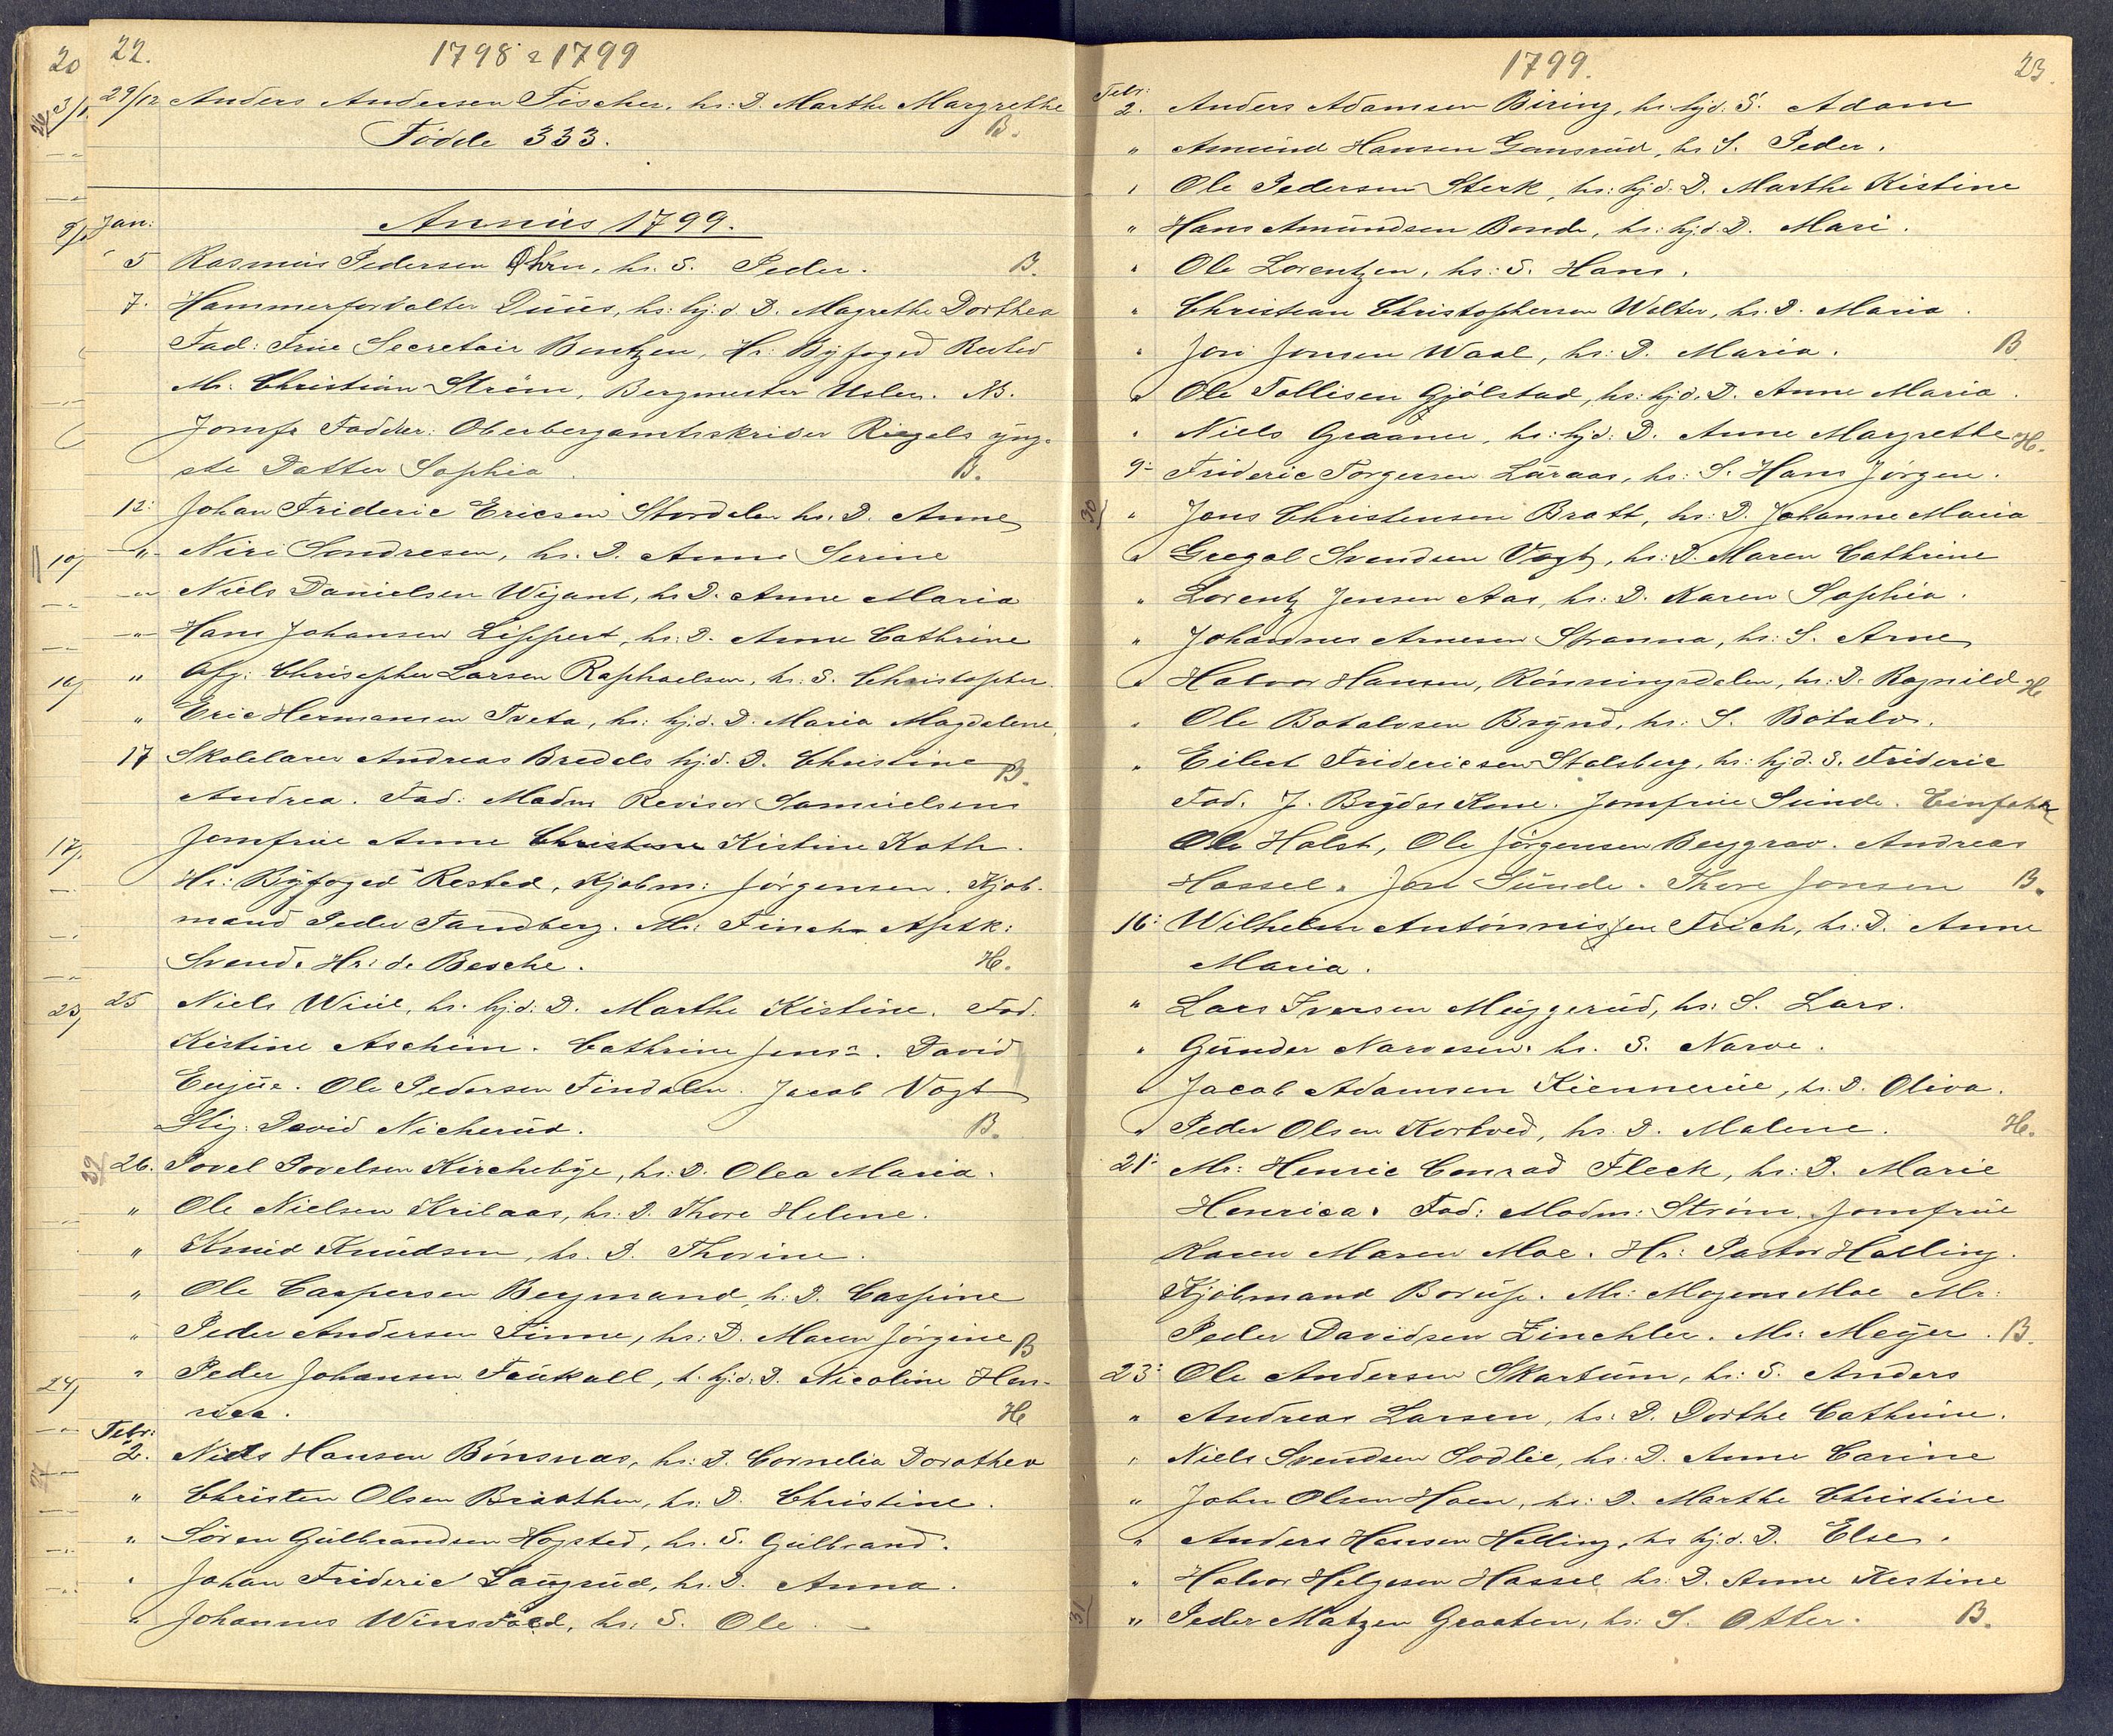 20 22. 1798 & 1799
3/1 29/12 Anders Andersen Fischer, hs: D. Marthe Margrethe
B.
Födde 333.
Jan: Annus 1799.
5 Rasmus Pedersen Öhrn, hs. S. Peder. B.
7. Hammerforvalter Duus, hs: hj: d. D. Magrethe Dorthea
Fad: Frue Secretair Bentzen, Hr: Byfoged Rested
Mr. Christian Ström, Bergmester Usler. NB.
Jomfr Fadder: Oberbergamtsskriver Riegels yng-
ste Datter Sophia. B.
12: Johan Frideric Ericsen Stordalen hs. D. Anne
" Niri Sondresen, hs. D. Anne Serine
" Niels Danielsen Wigant, hs D. Anne Maria
" Hans Johansen Lippert, hs: D. Anne Cathrine
" Afg: Chrisepher Larsen Raphaelsen, hs: S. Christopher.
" Eric Hermansen Tveta, hs: hj: d. D. Maria Magdalene,
17 Skolelarer Andreas Bredels hj. d. D. Christine B.
Andrea. Fad: Madm Revisor Samuelsens
Jomfrue Anne Christine Kistine Koth.
Hr: Byfoged Rested, Kjobm: Jörgensen. Kjob-
mand Peder Tandberg. Mr: Finchn Aptk:
Svend. Hr: de Besche. H.
25 Niels Wiul, hs. hj. d: D. Marthe Kistine. Fad.
Kistine Aschim. Cathrine Jensn. David
Enjue. Ole Pedersen Tindalen. Jacob Vogt
Stig: David Nicherud. B.
29 26. Povel Povelsen Kirchebye, hs: D. Olea Maria.
" Ole Nielsen Krilaas, hs: D. Thore Helene.
" Knud Knudsen, hs. D. Thorine.
" Ole Caspersen Bergmand, h: D. Caspine
" Peder Andersen Finne, hs: D. Maren Jörgine B
" Peder Johansen Faukall, h. hj: d: D. Nicoline Hen-
rica. H
Febr:
2. Niels Hansen Bönsnæs, hs: D. Cornelia Dorothea
" Christen Olsen Braathen, hs: D. Christine.
" Sören Gulbrandsen Hogsted, hs. S. Gulbrand.
" Johan Frideric Laugrud, hs. D. Anna.
" Johannes Winsvold, hs: S. Ole.
1799. 23.
Febr:
2. Anders Adamsen Biring, hs: hj: d: S. Adam
" Amund Hansen Gamsrud, hs S. Peder.
" Ole Pedersen Sterk, hs: hj: d. D. Marthe Kistine
" Hans Amundsen Bonde, hs: hj: d. D. Mari.
" Ole Lorentzen, hs: S. Hans.
" Christian Christophersen Wolter, hs. D. Maria.
" Jon Jonsen Waal, hs: D. Maria. B.
" Ole Tollisen Gjölstad, hs: hj: d. D. Anne Maria.
" Niels Graaner, hs: hj: d: D. Anne Margrethe H.
9 Frideric Torgersen Laraas, hs: S. Hans Jörgen.
30 " Jens Christensen Bratt, hs: D. Johanne Maria
" Gregal Svendsen Vogt, hs: D. Maren Cathrine
" Lorentz Jensen Aas, hs: D. Karen Sophia.
" Johannes Arnesen Stranna, hs: S. Arne
" Halvor Hansen, Rönningsdalen, hs: D. Ragnild H
" Ole Botolvsen Brynd, hs: S. Botolv.
" Eilert Fridericsen Stalsberg, hs: hj. d. S. Frideric
Fad. J. Brydes Kone. Jomfrue Sunde. Einfahr
Ole Holst, Ole Jörgensen Berggrav. Andreas
Hassel. Jon Sunde. Thore Jonsen B.
16: Wilhelm Antönnissen Frich, hs: D. Anne
Maria.
" Lars Iversen Muggerud, hs: S. Lars.
" Gunder Narvesen. hs. S. Narve.
" Jacob Adamsen Kiennerue, hs. D. Oliva.
" Peder Olsen Kortved, hs. D. Malene. H.
21: Mr: Henric Conrad Fleck, hs: D. Marie
Henrica. Fad: Madm: Ström. Jomfrue
Karen Maren Moe. Hr: Pastor Halling.
Kjöbmand Borup. Mr: Mogens Moe Mr:
Peder Davidsen Zinchler. Mr: Meyer. B.
23: Ole Andersen Skartum, hs: S. Anders
" Andreas Larsen, hs. D. Dorthe Cathrine.
" Niels Svendsen Sodlie, hs: D. Anne Carine
" John Olsen Hoen, hs: D. Marthe Christine
" Anders Hansen Helling, hs hj. d. D. Else.
" Halvor Helgesen Hassel hs: D. Anne Kistine
31 " Peder Matzen Graaten, hs: S. Otter. B.